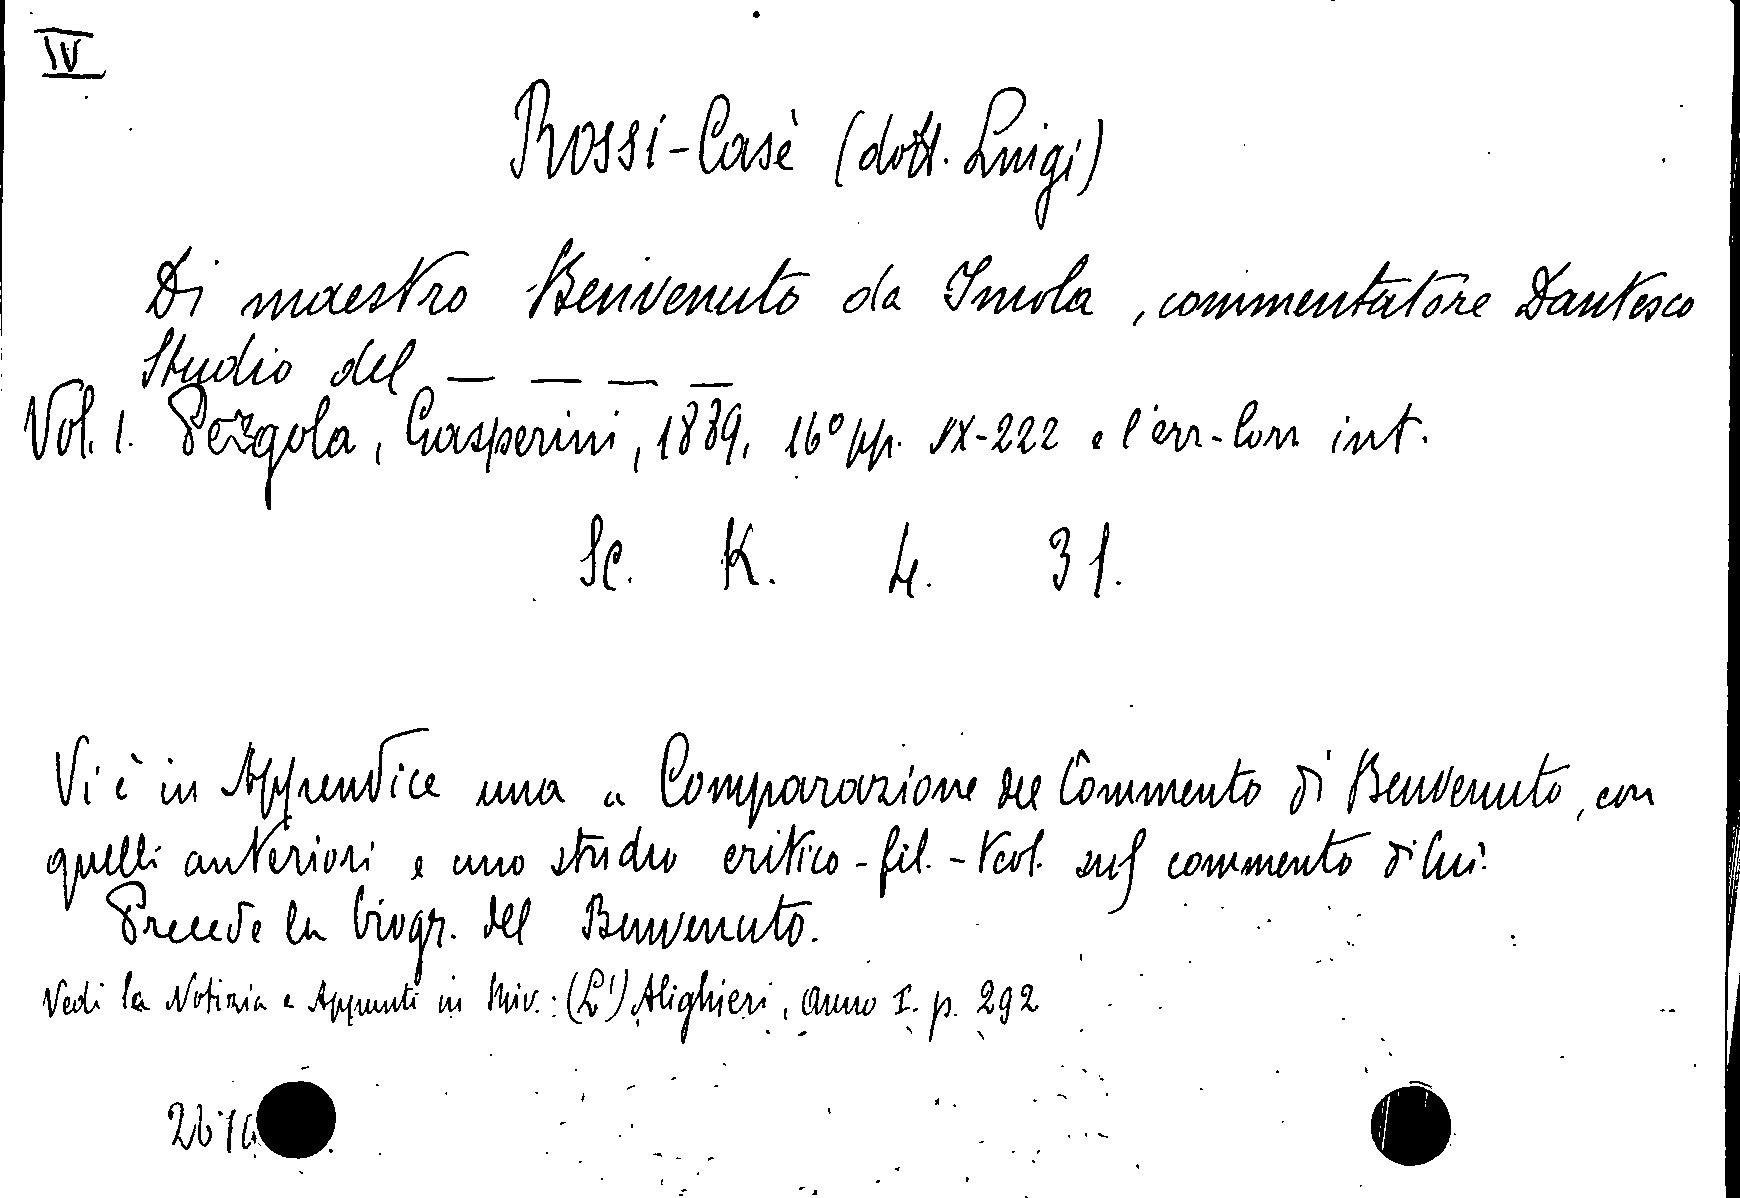 IV
Rossi-Casè (dott. Luigi)
Di maestro Benvenuto da Imola, commentatore Dantesco
Studio del — — — —
Vol. I. Pergola, Gasperini, 1889, 16° pp. IX-222 e l'err-Corr int.
Sc. K. 4. 31.
Vi è in Appendice una „ Comparazione del Commento di Benvenuto, con
quelli anteriori e uno studio critico-fil.-teol. sul commento di lui.
Precede la biogr. del Benvenuto.
Vedi la Notizia e Appunti in Riv.: (L') Alighieri, anno I. p. 292